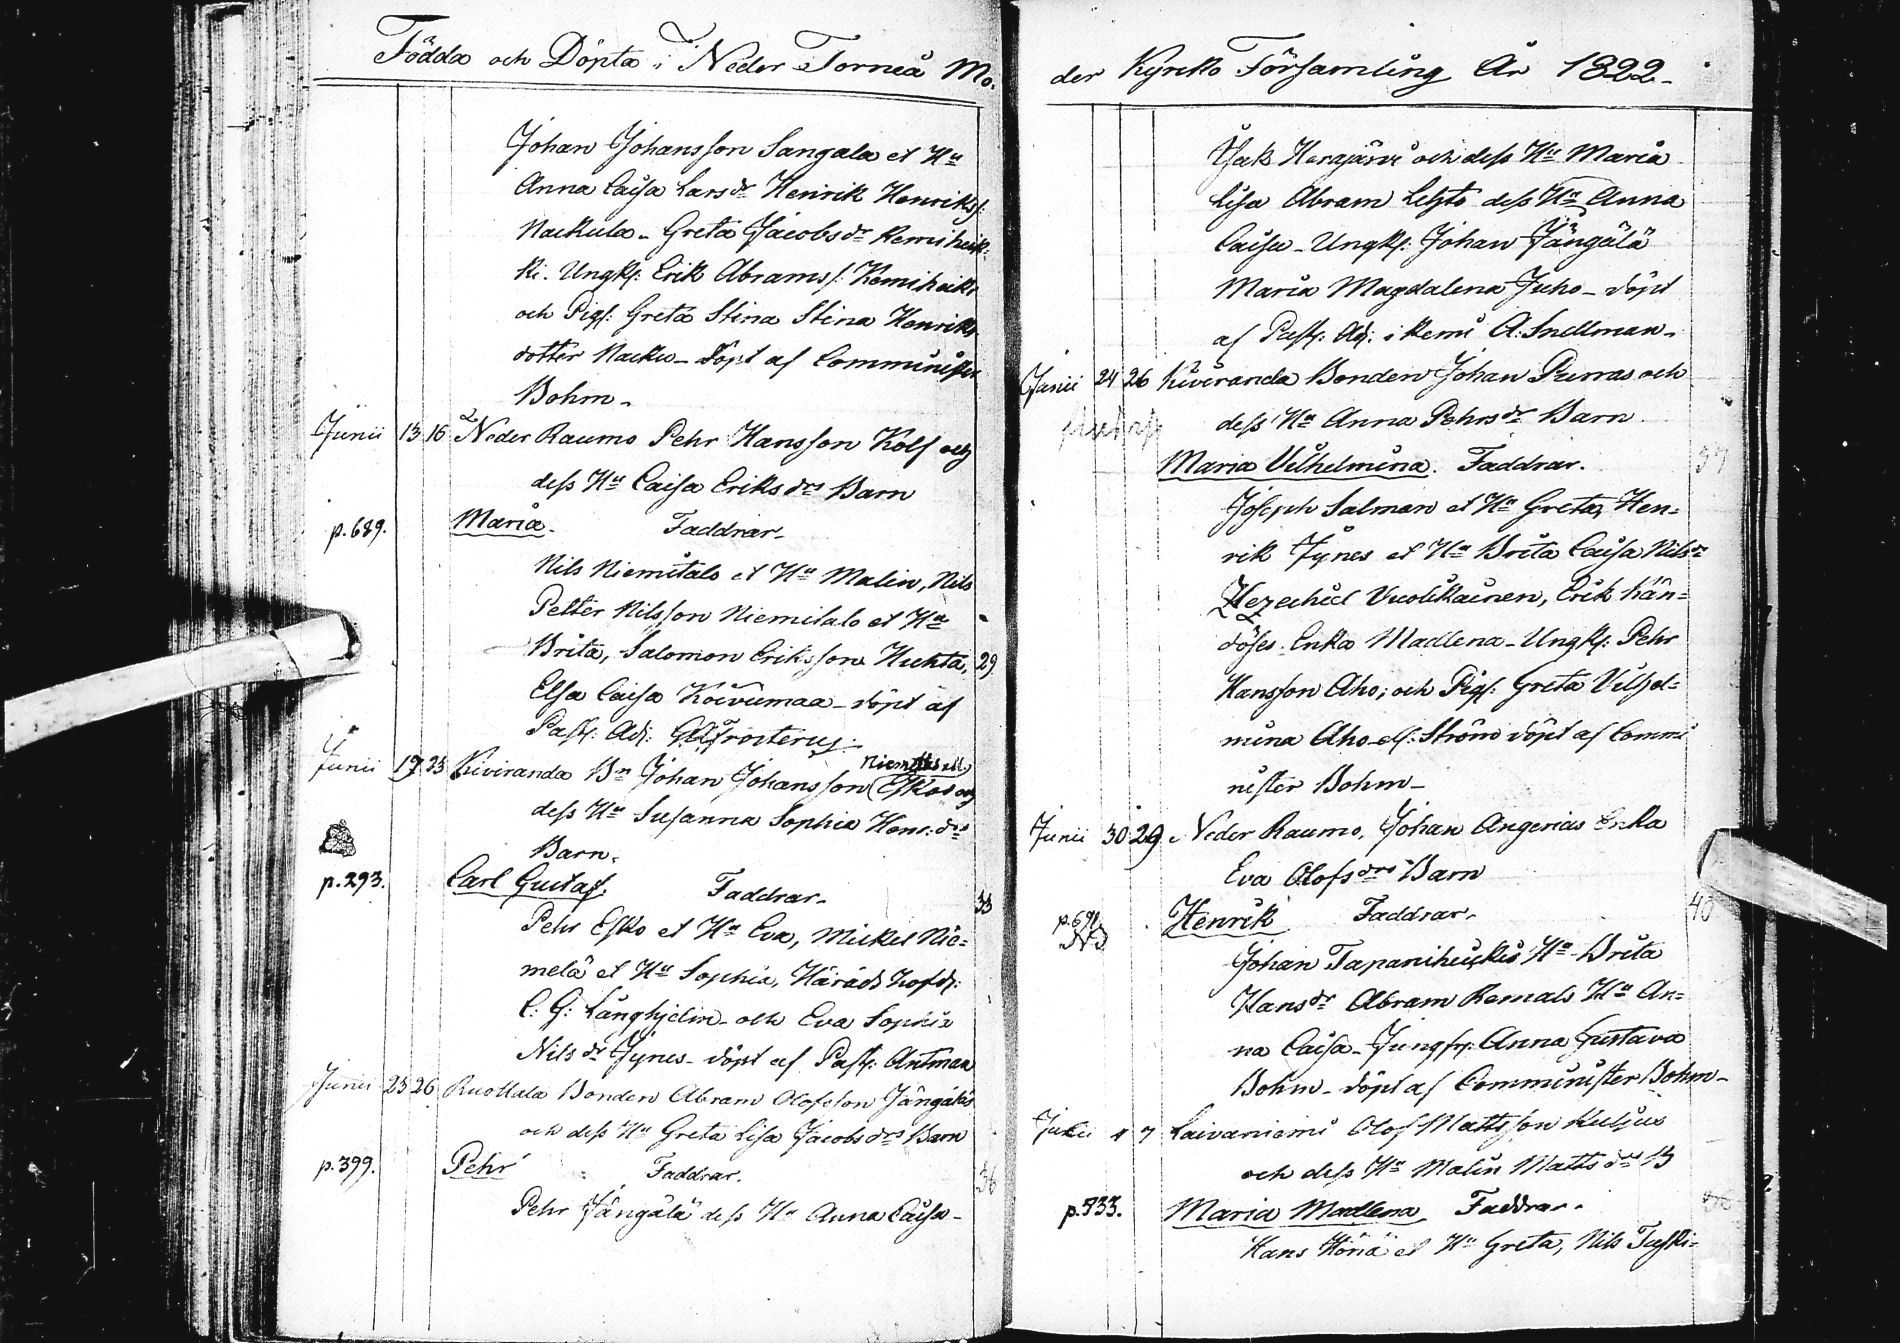 Födda och Döpta i Neder Torneå Mo-
Johan Johansson Sangala et Hu
Anna Caisa Larsdr Henrik Henrikss:
Nackula - Greta Jacobsdr Kemiheik-
ki. Ungk: Erik Abramss: Kemiheikr
och Pig: Greta Stina Stina Henriks
dotter Nacku - döpt af Comminister
Bohm -
Junii 13 16 Neder Raumo Pehr Hansson Kolf och
dess Hu Caisa Eriksdrs Barn
p. 689. Maria. Faddrar.
Nils Niemitalo et Hu Malin, Nils
Petter Nilsson Niemitalo et Hu
Brita, Salomon Eriksson Huhta, 29
Elsa Caisa Koivumaa - döpt af
Past: Adj: Frosterus
Junii 19 23 Kiviranda Bn Johan Johansson (Esko och
dess Hu Susanna Sophia Henr: drs
Barn.
p. 293. Carl Gustaf. Faddrar. 33
Pehr Esko et Hu Eva, Mickel Nie-
melä et Hu Sophia, Härads höfd:
C: G: Långhjelm - och Eva Sophia
Nilsdr Jynes - döpt af Past: Antman
Junii 25 26 Ruottala Bonden Abram Olofsson Jängäläs
och dess Hu Greta Lisa Jacobsdrs Barn
p. 399. Pehr Faddrar. 36
Pehr Jängälä dess Hu Anna Caisa -
der Kyrko Församling År 1822 -
Isak Herajärvi och dess Hu Maria
Lisa Abram Lehto dess Hu Anna
Caisa - Ungk: Johan Jängälä
Maria Magdalena Juho - döpt
af Past: Adj: i Kemi A: Snellman -
Junii 24 26 Kiviranda Bonden Johan Purras och
dess Hu Anna Pehrsdr Barn
Maria Vilhelmina. Faddrar. 37
Joseph Salman et Hu Greta, Hen-
rik Jynes et Hu Brita Caisa Nilsdr
Hezechiel Vuolikainen, Erik Kän-
döses Enka Madlena - Ungk: Pehr
Hansson Aho; och Pig: Greta Vilhel-
mina Aho el: Ström döpt af Commi
nister Bohm -
Junii 30 29 Neder Raumo, Johan Angerias Enka
Eva Olofsdrs Barn
p. 691 Henrik Faddrar. 40
Johan Tapaniheickis Hu Brita
Hansdr Abram Remals Hu An-
na Caisa - Jungfr: Anna Gustava
Bohm - döpt af Comminister Bohm -
Julii 4 7 Laivaniemi Olof Mattsson
och dess Hu Malin Mattsdrs B
p. 533. Maria Madlena Faddrar.
Hans Höriä et Hu Greta, Nils